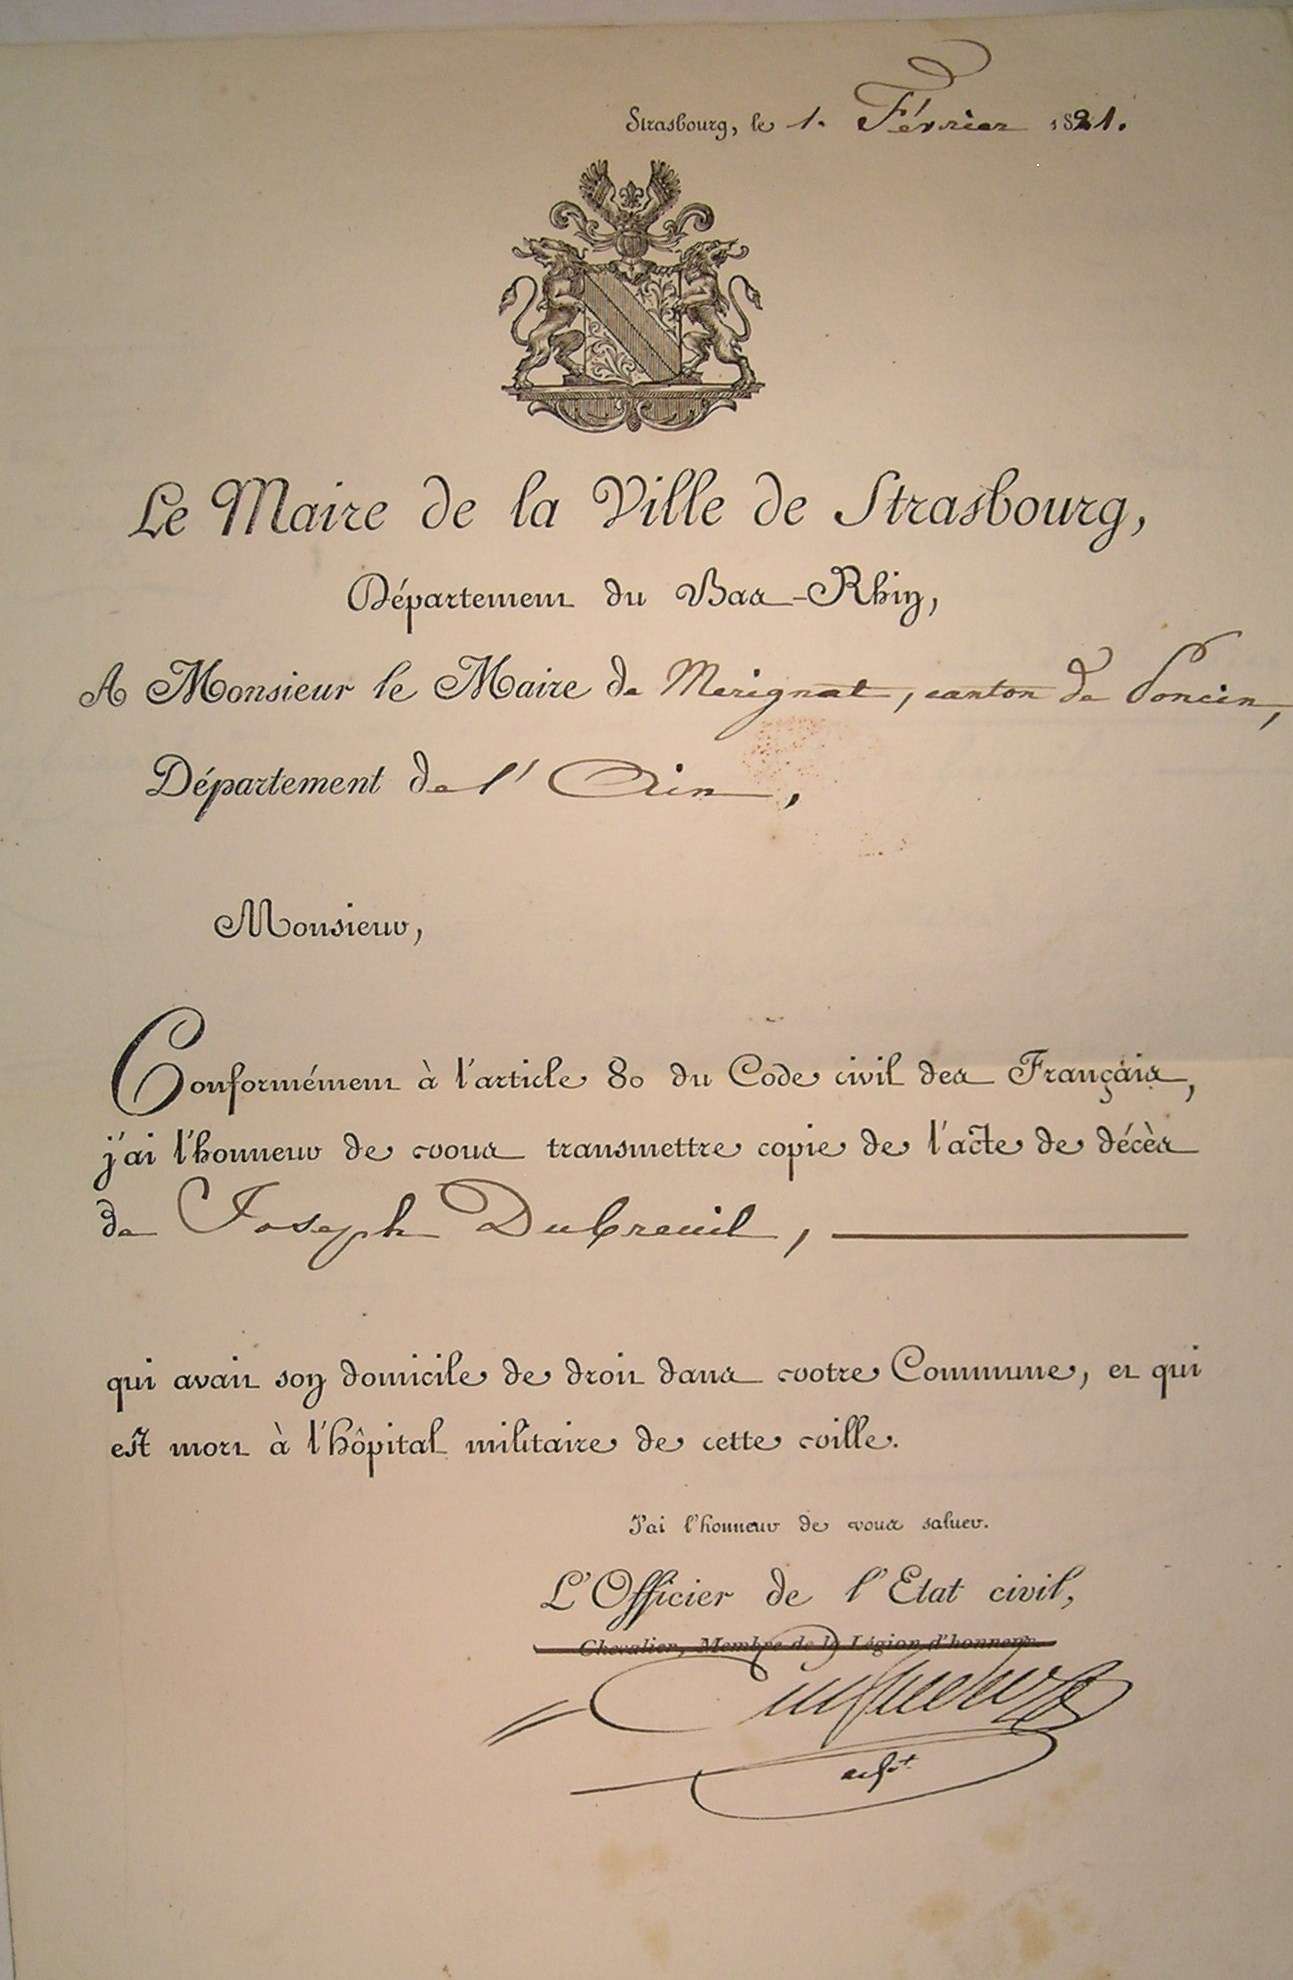 Strasbourg, le 1. Février 1821.
Le Maire de la Ville de Strasbourg,
Département du Bas-Rhin,
A Monsieur le Maire de Merignat, canton de Poncin,
Département de l'Ain,
Monsieur,
Conformément à l'article 80 du Code civil des Français,
j'ai l'honneur de vous transmettre copie de l'acte de décès
de Joseph Dubreuil,
qui avait son domicile de droit dans votre Commune, et qui
est mort à l'hôpital militaire de cette ville.
J'ai l'honneur de vous saluer.
L'Officier de l'Etat civil,
Chevalier, Membre de la Légion d'honneur.